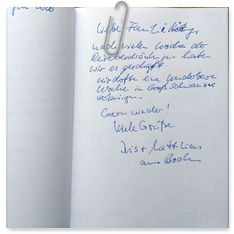 Liebe Familie
nach vielen Wochen der
Reisebeschränkungen haben
wir es geschafft
wir durften eine wunderbare
Woche in Großschwansee
verbringen.
Gerne wieder!
Viele Grüße
Matthias
aus